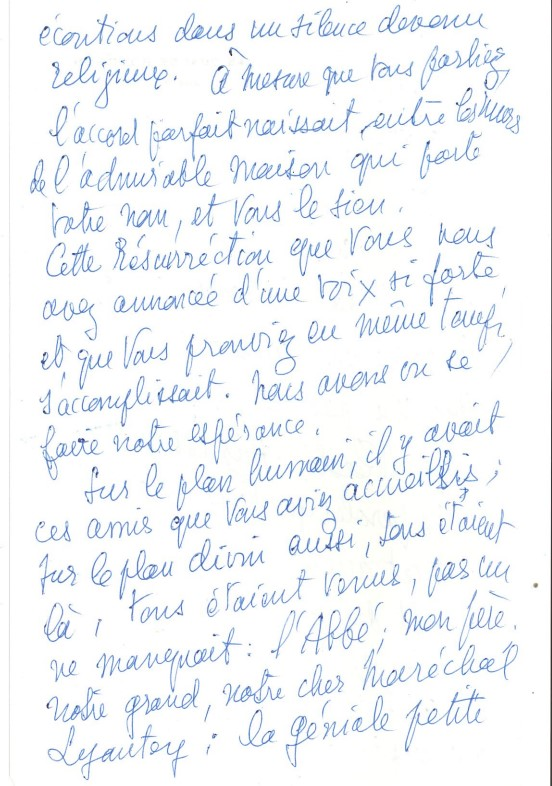 écoutions dans un silence devenu
religieux. À mesure que vous parliez,
l'accord parfait naissait, entre les murs
de l'admirable maison qui porte
votre nom, et vous le sien.
Cette Résurrection que vous nous
avez annoncée d'une voix si forte,
et que vous prouviez en même temps,
s'accomplissait. Nous avons vu se
faire notre espérance.
Sur le plan humain, il y avait
ces amis que vous aviez accueillis ;
sur le plan divin aussi, tous étaient
là, tous étaient venus, pas un
ne manquait : l'Abbé, mon père.
notre grand, notre cher Maréchal
Lyautey ; la géniale petite